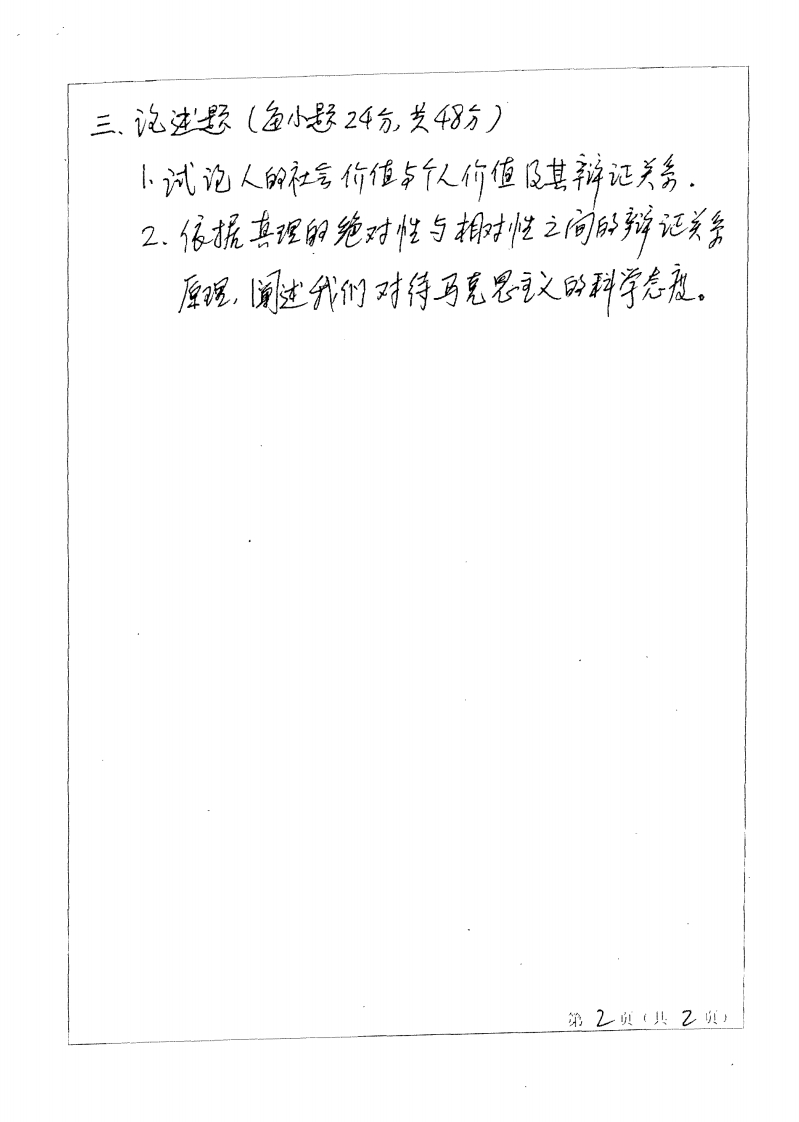 三、论述题(每小题24分,共48分)
1.试论人的社会价值与个人价值及其辩证关系.
2.依据真理的绝对性与相对性之间的辩证关系
原理,阐述我们对待马克思主义的科学态度。
第2页(共2页)